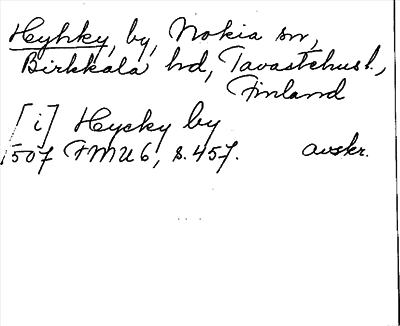 Hyhky, by, Nokia sn,
Birkkala hd, Tavastehusl.,
Finland
[i] Hycky by
1507 FMU 6, s. 457. avskr.